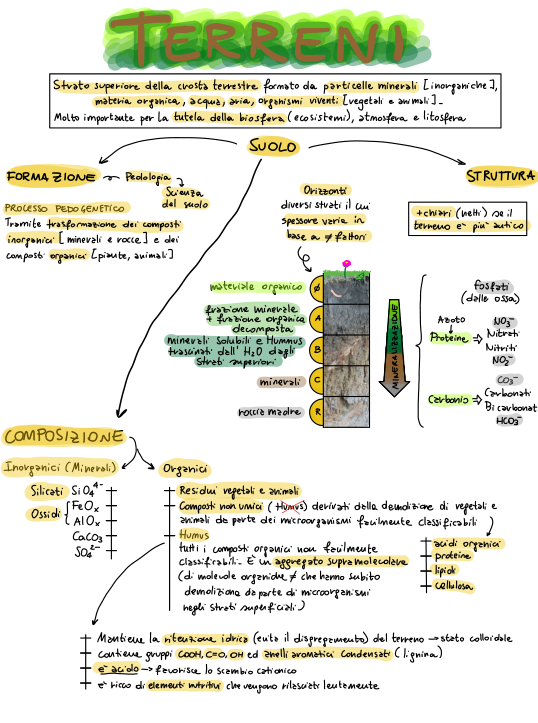 TERRENI
Strato superiore della crosta terrestre formato da particelle minerali [inorganiche],
materia organica, acqua, aria, organismi viventi [vegetali e animali].
Molto importante per la tutela della biosfera (ecosistemi), atmosfera e litosfera
SUOLO
FORMAZIONE
Pedologia
Scienza
del suolo
PROCESSO PEDOGENETICO
Tramite trasformazione dei composti
inorganici [minerali e rocce] e dei
composti organici [piante, animali]
Orizzonti
diversi strati il cui
spessore varia in
base a ≠ fattori
STRUTTURA
+ chiari (netti) se il
terreno e' piu' antico
materiale organico
Ø
frazione minerale
+ frazione organica
decomposta
A
minerali solubili e Hummus
trascinati dall' H2O dagli
strati superiori
B
minerali
C
roccia madre
R
MINERALIZZAZIONE
fosfati
(dalle ossa)
Azoto
Proteine
NO3⁻
Nitrati
Nitriti
NO2⁻
Carbonio
CO3⁻
Carbonati
Bicarbonati
HCO3⁻
COMPOSIZIONE
Inorganici (Minerali)
Silicati SiO4⁴⁻
Ossidi { FeOx
AlOx
CaCO3
SO4²⁻
Organici
Residui vegetali e animali
Composti non umici (Humus) derivati dalla demolizione di vegetali e
animali da parte dei microorganismi facilmente classificabili
acidi organici
proteine
lipidi
cellulosa
Humus
tutti i composti organici non facilmente
classificabili. E' un aggregato supramolecolare
(di molecole organiche ≠ che hanno subito
demolizione da parte di microorganismi
negli strati superficiali)
Mantiene la ritenzione idrica (evita il disgregamento) del terreno → stato colloidale
contiene gruppi COOH, C=O, OH ed anelli aromatici condensati (lignina)
e' acido → favorisce lo scambio cationico
e' ricco di elementi nutritivi che vengono rilasciati lentamente